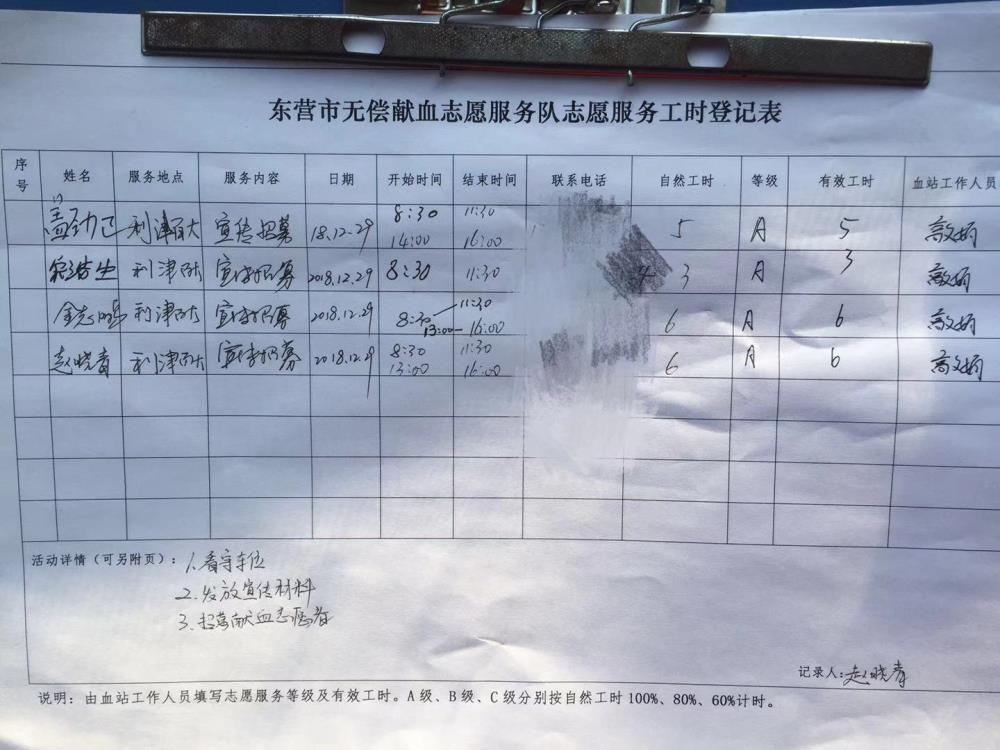 东营市无偿献血志愿服务队志愿服务工时登记表
序号 姓名 服务地点 服务内容 日期 开始时间 结束时间 联系电话 自然工时 等级 有效工时 血站工作人员
利津百大 宣传招募 18.12.29 8:30 14:00 11:30 16:00 5 A 5
利津百大 宣传招募 2018.12.29 8:30 11:30 3 A 3
金志鹏 利津百大 宣传招募 2018.12.29 8:30 — 11:30 13:00 — 16:00 6 A 6
赵晓青 利津百大 宣传招募 2018.12.29 8:30 13:00 11:30 16:00 6 A 6
活动详情（可另附页）：1.看守车位
2.发放宣传材料
3.招募献血志愿者
记录人：赵晓青
说明：由血站工作人员填写志愿服务等级及有效工时。A级、B级、C级分别按自然工时100%、80%、60%计时。